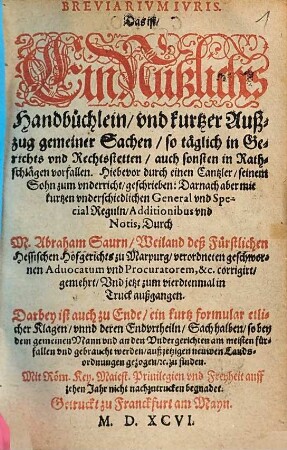 BREVIARIVM IVRIS.
Das ist/
1
Ein Nützlichs
Handbüchlein/ vnd kurtzer Auß-
zug gemeiner Sachen/ so täglich in Ge-
richts vnd Rechtsstetten/ auch sonsten in Rath-
schlägen vorfallen. Hiebevor durch einen Cantzler/ seinem
Sohn zum vnderricht/ geschrieben: Darnach aber mit
kurtzen vnderschiedlichen General vnd Spe-
cial Reguln/ Additionibus vnd
Notis, Durch
M. Abraham Saurn/ Weiland deß Fürstlichen
Hessischen Hofgerichts zu Marpurg/ verordneten geschwor-
nen Aduocatum vnd Procuratorem, &c. corrigirt/
gemehrt/ Vnd jetzt zum vierdtenmal in
Truck außgangen.
Darbey ist auch zu Ende/ ein kurtz formular etli-
cher Klagen/ vnnd deren Endvrtheiln/ Sachhalben/ so bey
dem gemeinen Mann vnd an den Vndergerichten am meisten für-
fallen vnd gebraucht werden/ auß jetzigen neuwen Lands-
ordnungen gezogen/ &c. zu finden.
Mit Röm. Key. Maiest. Privilegien vnd Freyheit auff
zehen Jahr nicht nachzutrucken begnadet.
Getruckt zu Franckfurt am Mayn.
M. D. XCVI.